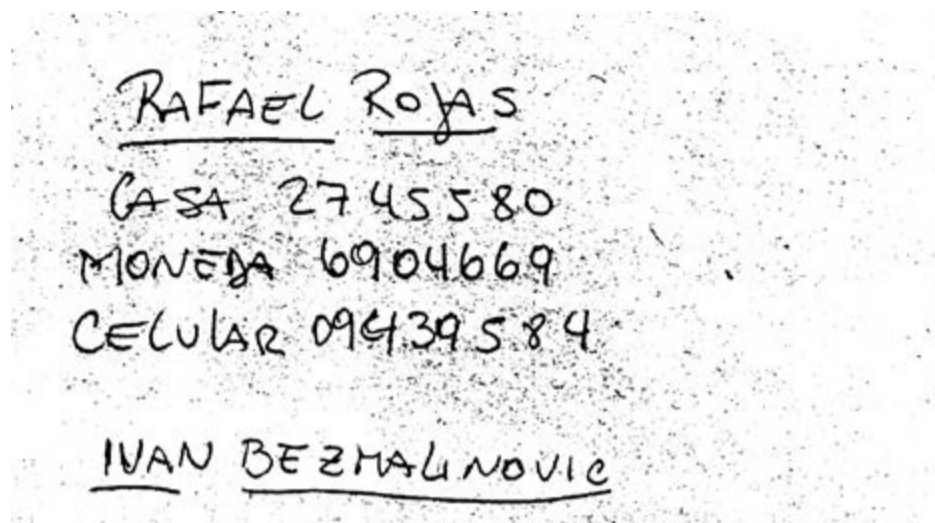 RAFAEL ROJAS
CASA 2745580
MONEDA 6904669
CELULAR 09439584
IVAN BEZMALINOVIC